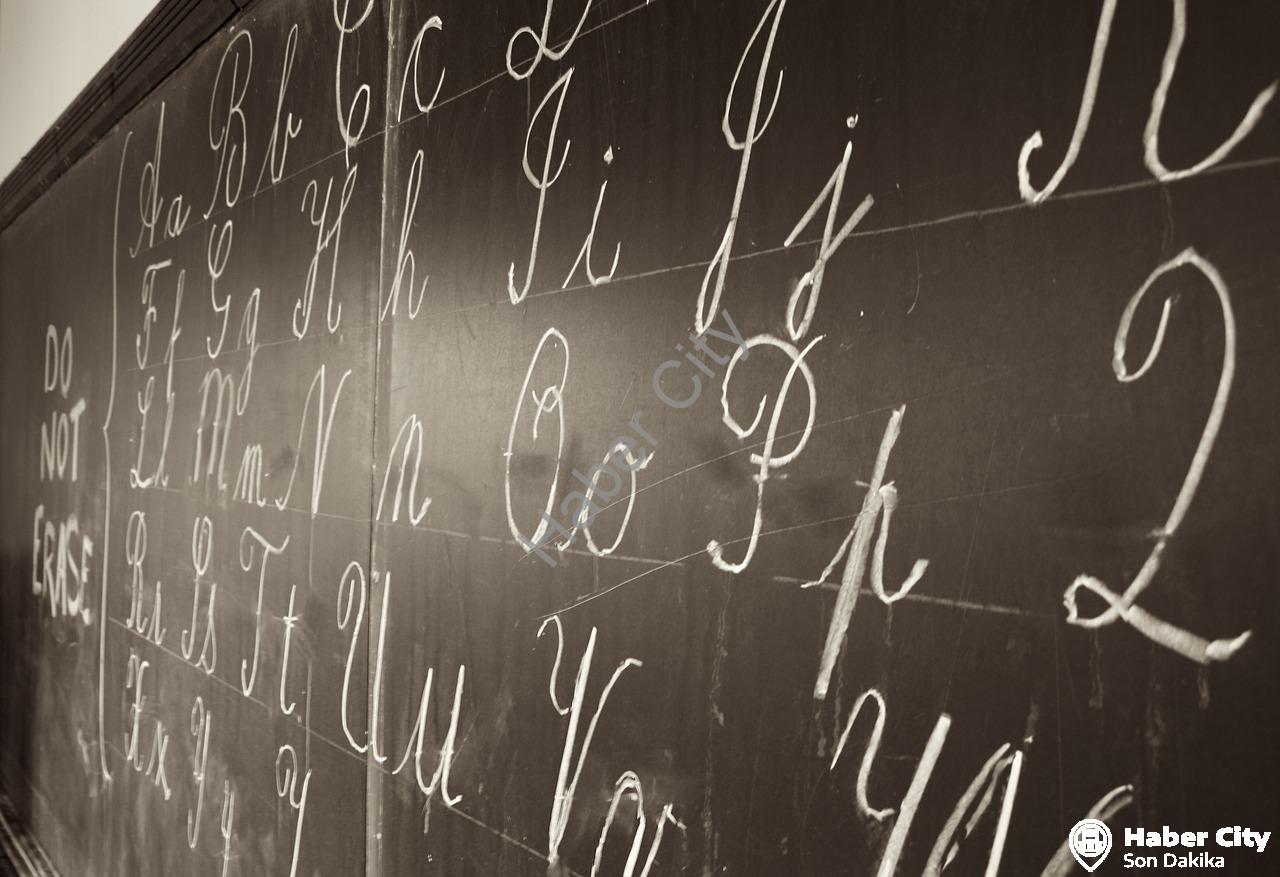 DO
NOT
ERASE
A a B b C c D
F f G g H h I i J j
L l M m N n O o P p Q
R r S s T t U u V v
X x Y y
Haber City
Haber City
Son Dakika